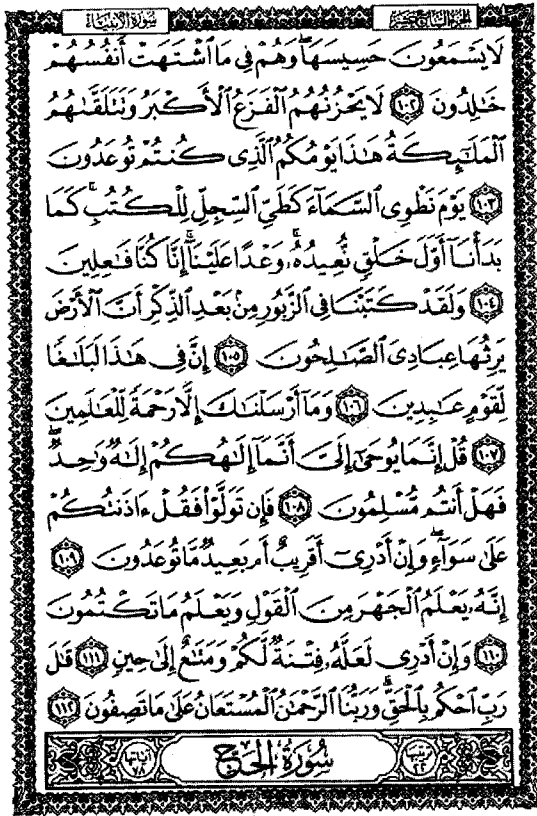 سُورَةُ الأَنبِيَاءِ
الجُزْءُ السَّابِعَ عَشَرَ
لَا يَسْمَعُونَ حَسِيسَهَا ۖ وَهُمْ فِي مَا ٱشْتَهَتْ أَنفُسُهُمْ
خَٰلِدُونَ ١٠٢ لَا يَحْزُنُهُمُ ٱلْفَزَعُ ٱلْأَكْبَرُ وَتَتَلَقَّىٰهُمُ
ٱلْمَلَٰٓئِكَةُ هَٰذَا يَوْمُكُمُ ٱلَّذِي كُنتُمْ تُوعَدُونَ
١٠٣ يَوْمَ نَطْوِي ٱلسَّمَآءَ كَطَيِّ ٱلسِّجِلِّ لِلْكُتُبِ ۚ كَمَا
بَدَأْنَآ أَوَّلَ خَلْقٍ نُّعِيدُهُۥ ۚ وَعْدًا عَلَيْنَآ ۚ إِنَّا كُنَّا فَٰعِلِينَ
١٠٤ وَلَقَدْ كَتَبْنَا فِي ٱلزَّبُورِ مِنۢ بَعْدِ ٱلذِّكْرِ أَنَّ ٱلْأَرْضَ
يَرِثُهَا عِبَادِيَ ٱلصَّٰلِحُونَ ١٠٥ إِنَّ فِي هَٰذَا لَبَلَٰغًا
لِّقَوْمٍ عَٰبِدِينَ ١٠٦ وَمَآ أَرْسَلْنَٰكَ إِلَّا رَحْمَةً لِّلْعَٰلَمِينَ
١٠٧ قُلْ إِنَّمَا يُوحَىٰٓ إِلَيَّ أَنَّمَآ إِلَٰهُكُمْ إِلَٰهٌ وَٰحِدٌ ۖ
فَهَلْ أَنتُم مُّسْلِمُونَ ١٠٨ فَإِن تَوَلَّوْا۟ فَقُلْ ءَاذَنتُكُمْ
عَلَىٰ سَوَآءٍ ۖ وَإِنْ أَدْرِيٓ أَقَرِيبٌ أَم بَعِيدٌ مَّا تُوعَدُونَ ١٠٩
إِنَّهُۥ يَعْلَمُ ٱلْجَهْرَ مِنَ ٱلْقَوْلِ وَيَعْلَمُ مَا تَكْتُمُونَ
١١٠ وَإِنْ أَدْرِي لَعَلَّهُۥ فِتْنَةٌ لَّكُمْ وَمَتَٰعٌ إِلَىٰ حِينٍ ١١١ قَٰلَ
رَبِّ ٱحْكُم بِٱلْحَقِّ ۗ وَرَبُّنَا ٱلرَّحْمَٰنُ ٱلْمُسْتَعَانُ عَلَىٰ مَا تَصِفُونَ ١١٢
ترتيبها ٢٢ سُورَةُ الحَجِّ آياتها ٧٨